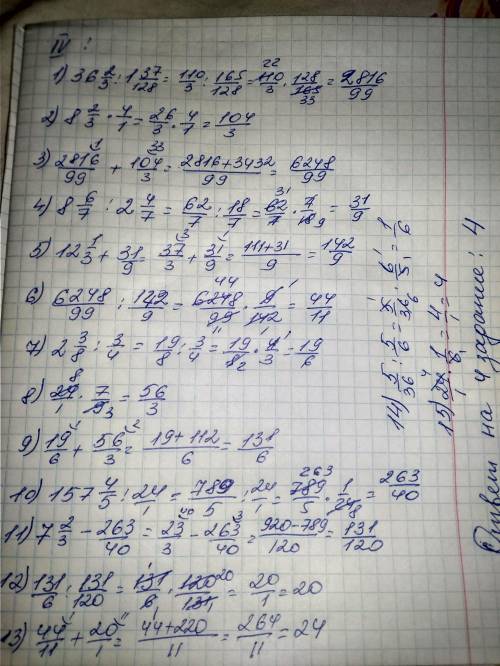 IV:
1) 36 2/3 : 1 37/128 = 110/3 : 165/128 = 110/3 · 128/165 = 2816/99
2) 8 2/3 · 4/1 = 26/3 · 4/1 = 104/3
3) 2816/99 + 104/3 = 2816+3432/99 = 6248/99
4) 8 6/7 : 2 4/7 = 62/7 : 18/7 = 62/7 · 7/18 = 31/9
5) 12 1/3 + 31/9 = 37/3 + 31/9 = 111+31/9 = 142/9
6) 6248/99 : 142/9 = 6248/99 · 9/142 = 44/11
7) 2 3/8 : 3/4 = 19/8 : 3/4 = 19/8 · 4/3 = 19/6
8) 24/1 · 7/9 = 56/3
9) 19/6 + 56/3 = 19+112/6 = 131/6
10) 157 4/5 : 24/1 = 789/5 : 24/1 = 789/5 · 1/24 = 263/40
11) 7 2/3 - 263/40 = 23/3 - 263/40 = 920-789/120 = 131/120
12) 131/6 : 131/120 = 131/6 · 120/131 = 20/1 = 20
13) 44/11 + 20/1 = 44+220/11 = 264/11 = 24
14) 5/36 : 5/6 = 5/36 · 6/5 = 1/6
15) 24/1 · 1/6 = 4/1 = 4
на 4 задание: 4